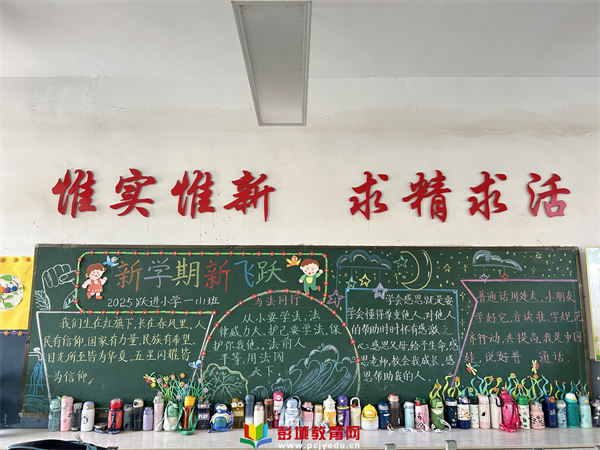 惟实惟新 求精求活
新学期新飞跃
2025跃进小学一(1)班
我们生在红旗下,长在春风里,人
民有信仰,国家有力量,民族有希望,
目光所至皆为华夏,五星闪耀皆
为信仰。
与法同行
从小要学法,法
律威力大,护己要学法,保
护你我他。法前人
平等,用法调
天下。
学会感恩就是要
学会懂得尊重他人,对他人
的帮助时时怀有感激之
心,感恩父母,给予生命,感
恩老师,教会我成长,感
恩帮助我的人。
普通话用处大,小朋友
学好它,音读准,字规范
齐行动,共提高,我是中国
娃,说好普通话。
彭城教育网
www.pcjyedu.cn